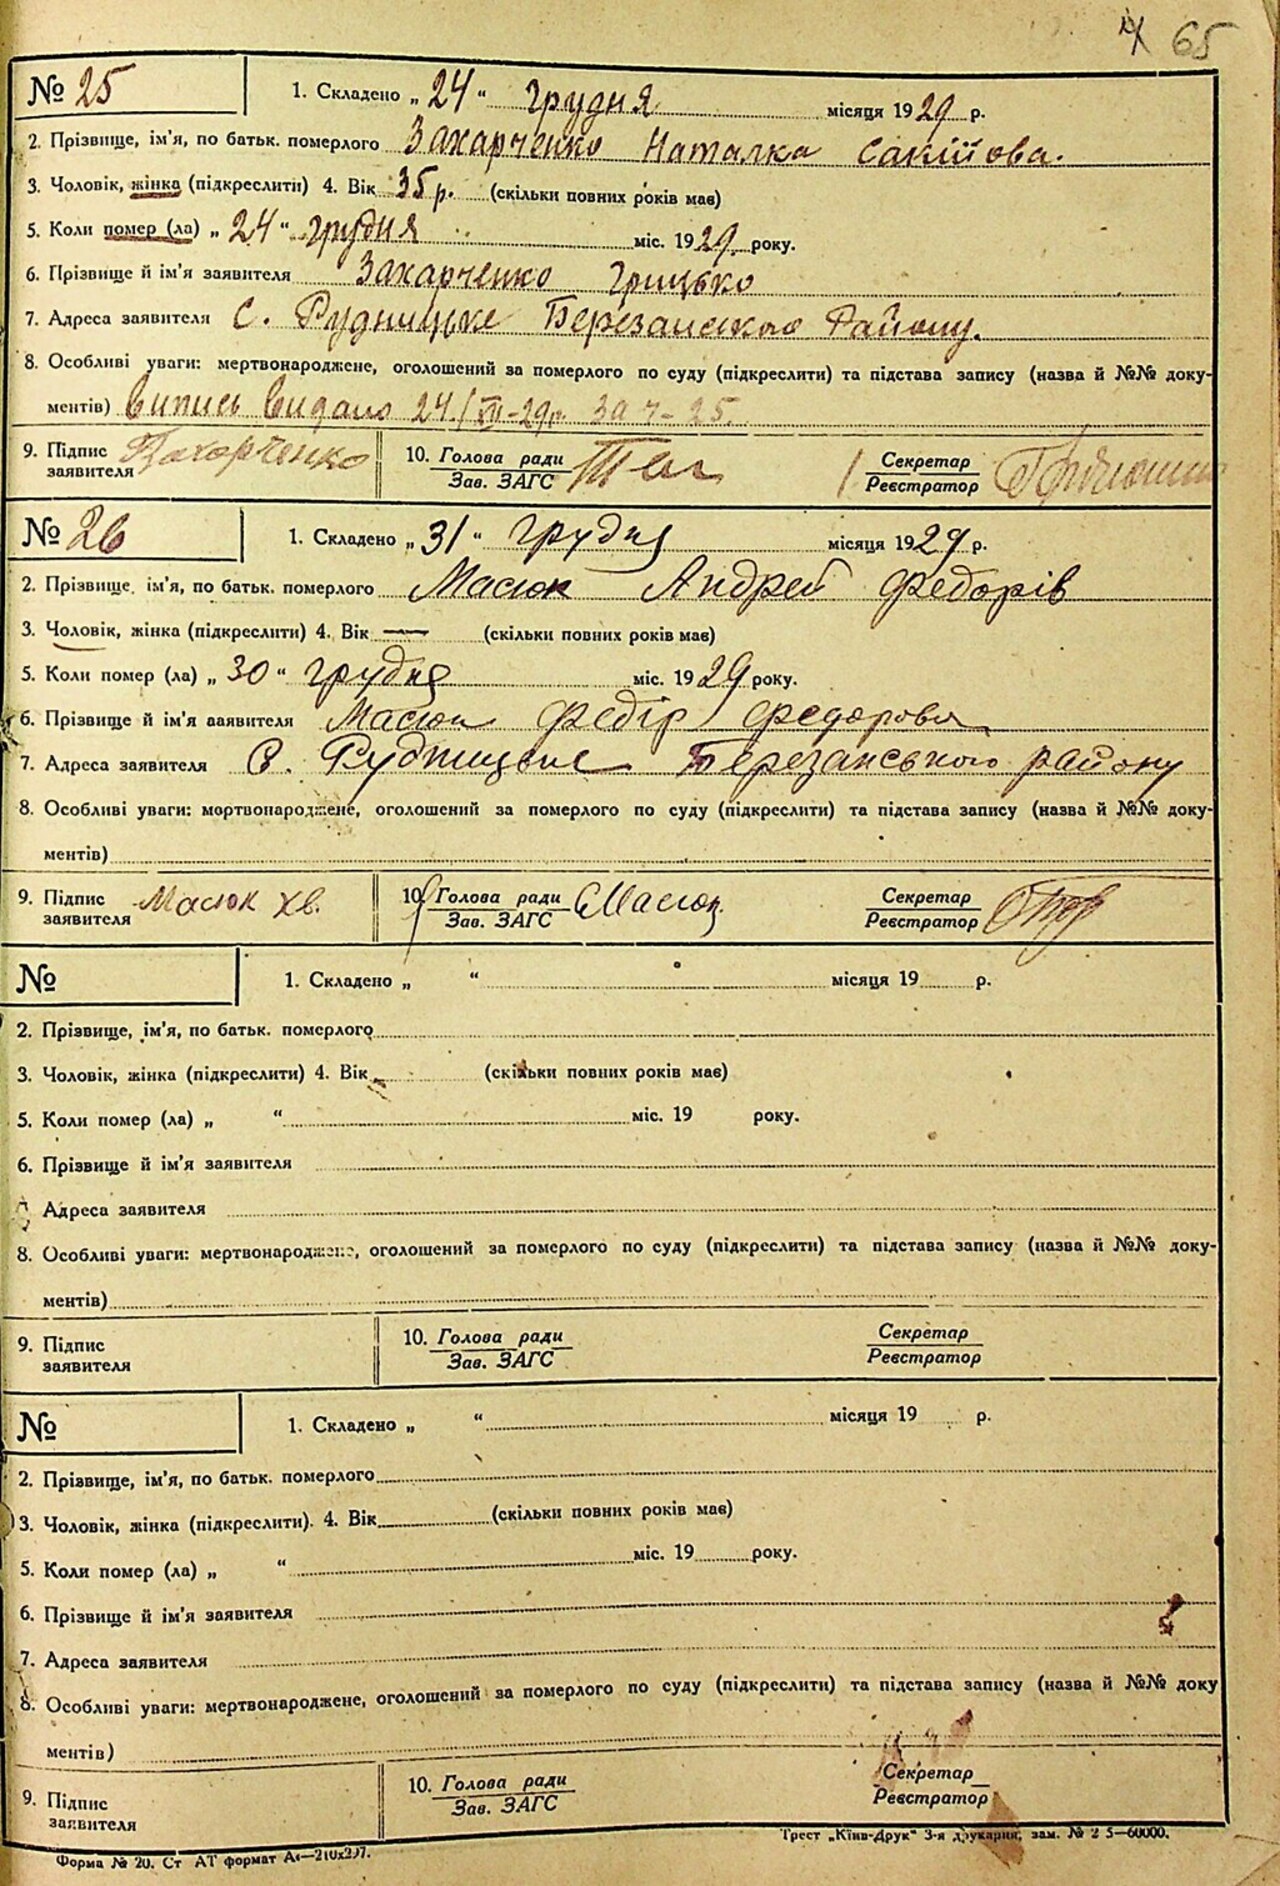 65
№ 25 1. Складено „24“ грудня місяця 1929 р.
2. Прізвище, ім'я, по батьк. померлого Захарченко Наталка Сакіїова.
3. Чоловік, жінка (підкреслити) 4. Вік 35 р. (скільки повних років має)
5. Коли помер (ла) „24“ грудня міс. 1929 року.
6. Прізвище й ім'я заявителя Захарченко Грицько
7. Адреса заявителя С. Рудницьке Березанського Району.
8. Особливі уваги: мертвонароджене, оголошений за померлого по суду (підкреслити) та підстава запису (назва й №№ доку-
ментів) Випись видано 24/XII-29р. за ч- 25.
9. Підпис Захарченко 10. Голова ради Секретар
заявителя Зав. ЗАГС Реєстратор
№ 26 1. Складено „31“ грудня місяця 1929 р.
2. Прізвище, ім'я, по батьк. померлого Масюк Андрей Федорів
3. Чоловік, жінка (підкреслити) 4. Вік — (скільки повних років має)
5. Коли помер (ла) „30“ грудня міс. 1929 року.
6. Прізвище й ім'я заявителя Масюк Федір Федорови
7. Адреса заявителя С. Рудницьке Березанського району
8. Особливі уваги: мертвонароджене, оголошений за померлого по суду (підкреслити) та підстава запису (назва й №№ доку-
ментів)
9. Підпис Масюк хв. 10. Голова ради Масюк Секретар
заявителя Зав. ЗАГС Реєстратор
№ 1. Складено „ “ місяця 19 р.
2. Прізвище, ім'я, по батьк. померлого
3. Чоловік, жінка (підкреслити) 4. Вік (скільки повних років має)
5. Коли помер (ла) „ “ міс. 19 року.
6. Прізвище й ім'я заявителя
Адреса заявителя
8. Особливі уваги: мертвонароджене, оголошений за померлого по суду (підкреслити) та підстава запису (назва й №№ доку-
ментів)
9. Підпис 10. Голова ради Секретар
заявителя Зав. ЗАГС Реєстратор
№ 1. Складено „ “ місяця 19 р.
2. Прізвище, ім'я, по батьк. померлого
3. Чоловік, жінка (підкреслити). 4. Вік (скільки повних років має)
5. Коли помер (ла) „ “ міс. 19 року.
6. Прізвище й ім'я заявителя
7. Адреса заявителя
8. Особливі уваги: мертвонароджене, оголошений за померлого по суду (підкреслити) та підстава запису (назва й №№ доку
ментів)
9. Підпис 10. Голова ради Секретар
заявителя Зав. ЗАГС Реєстратор
Трест „Київ-Друк“ 3-я друкарня, зам. № 2 5—60000.
Форма № 20. Ст АТ формат А4—210х297.